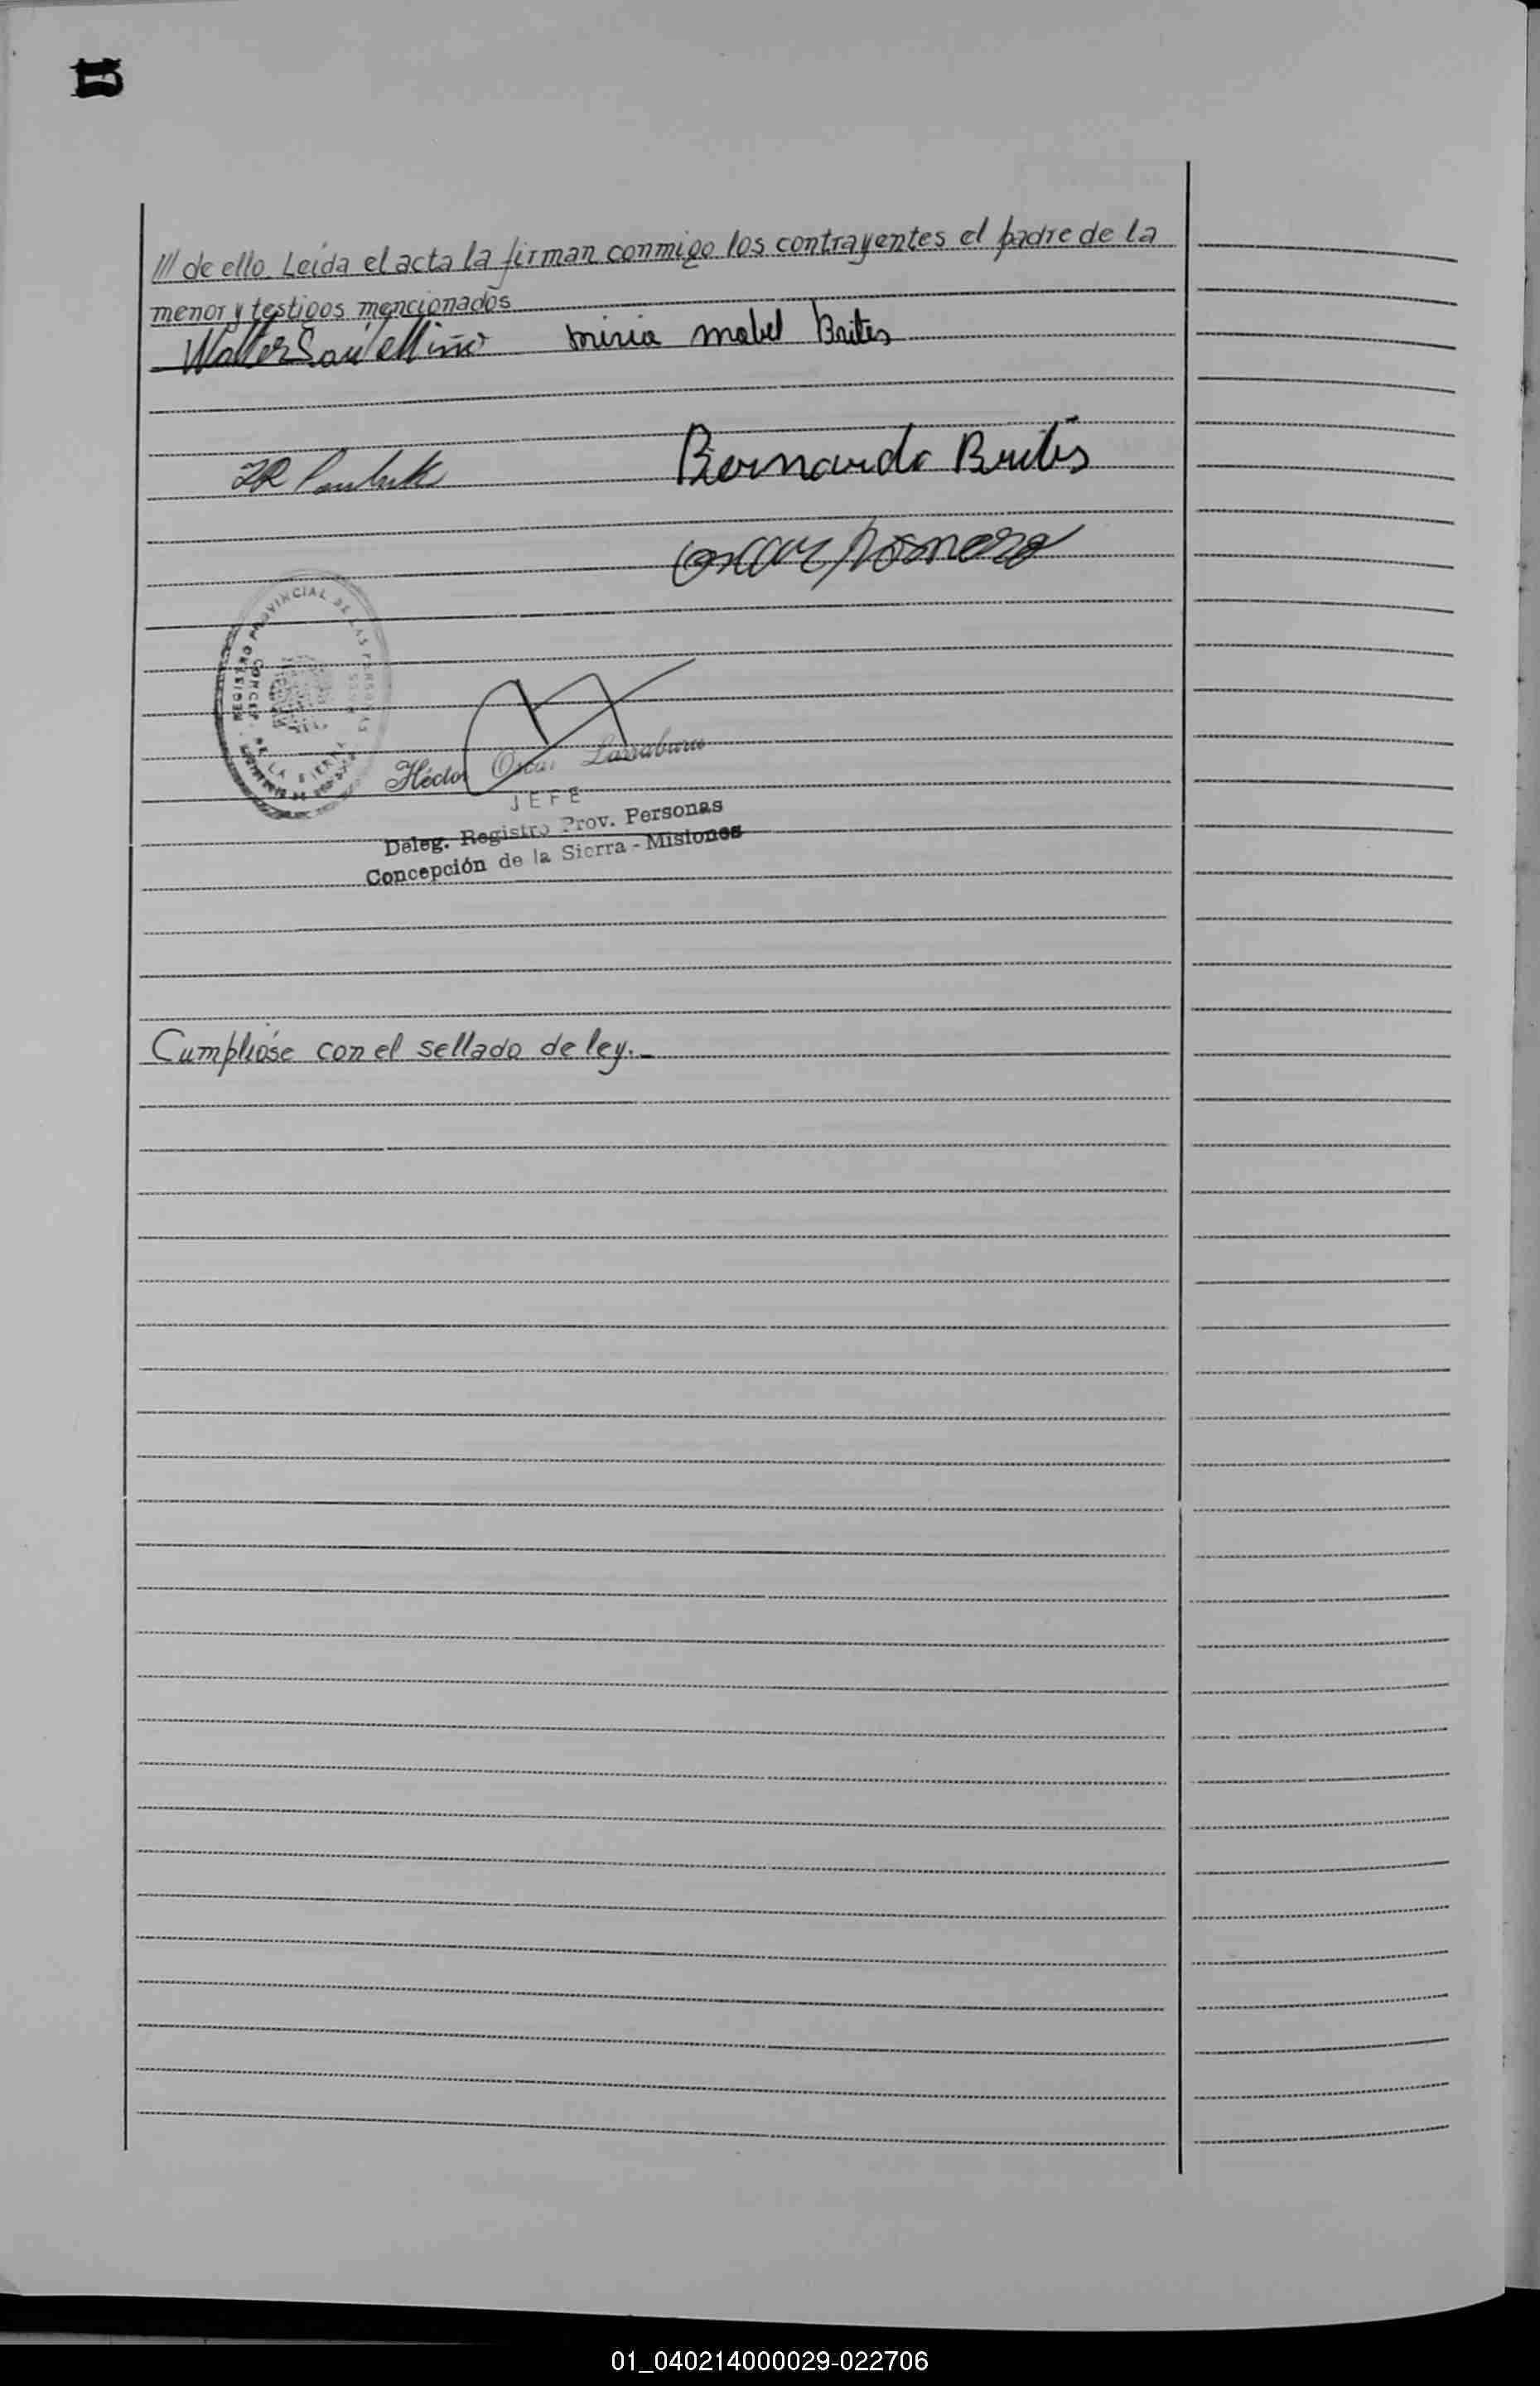 /// de ello. Leída el acta la firman conmigo los contrayentes el padre de la
menor y testigos mencionados
Walter Saul Miño miria mabel Brites
Bernardo Brites
Oscar Romero
REGISTRO PROVINCIAL DE LAS PERSONAS
CONCEP. DE LA SIERRA
Héctor Oscar Larraburu
JEFE
Deleg. Registro Prov. Personas
Concepción de la Sierra - Misiones
Cumplióse con el sellado de ley._
01_040214000029-022706